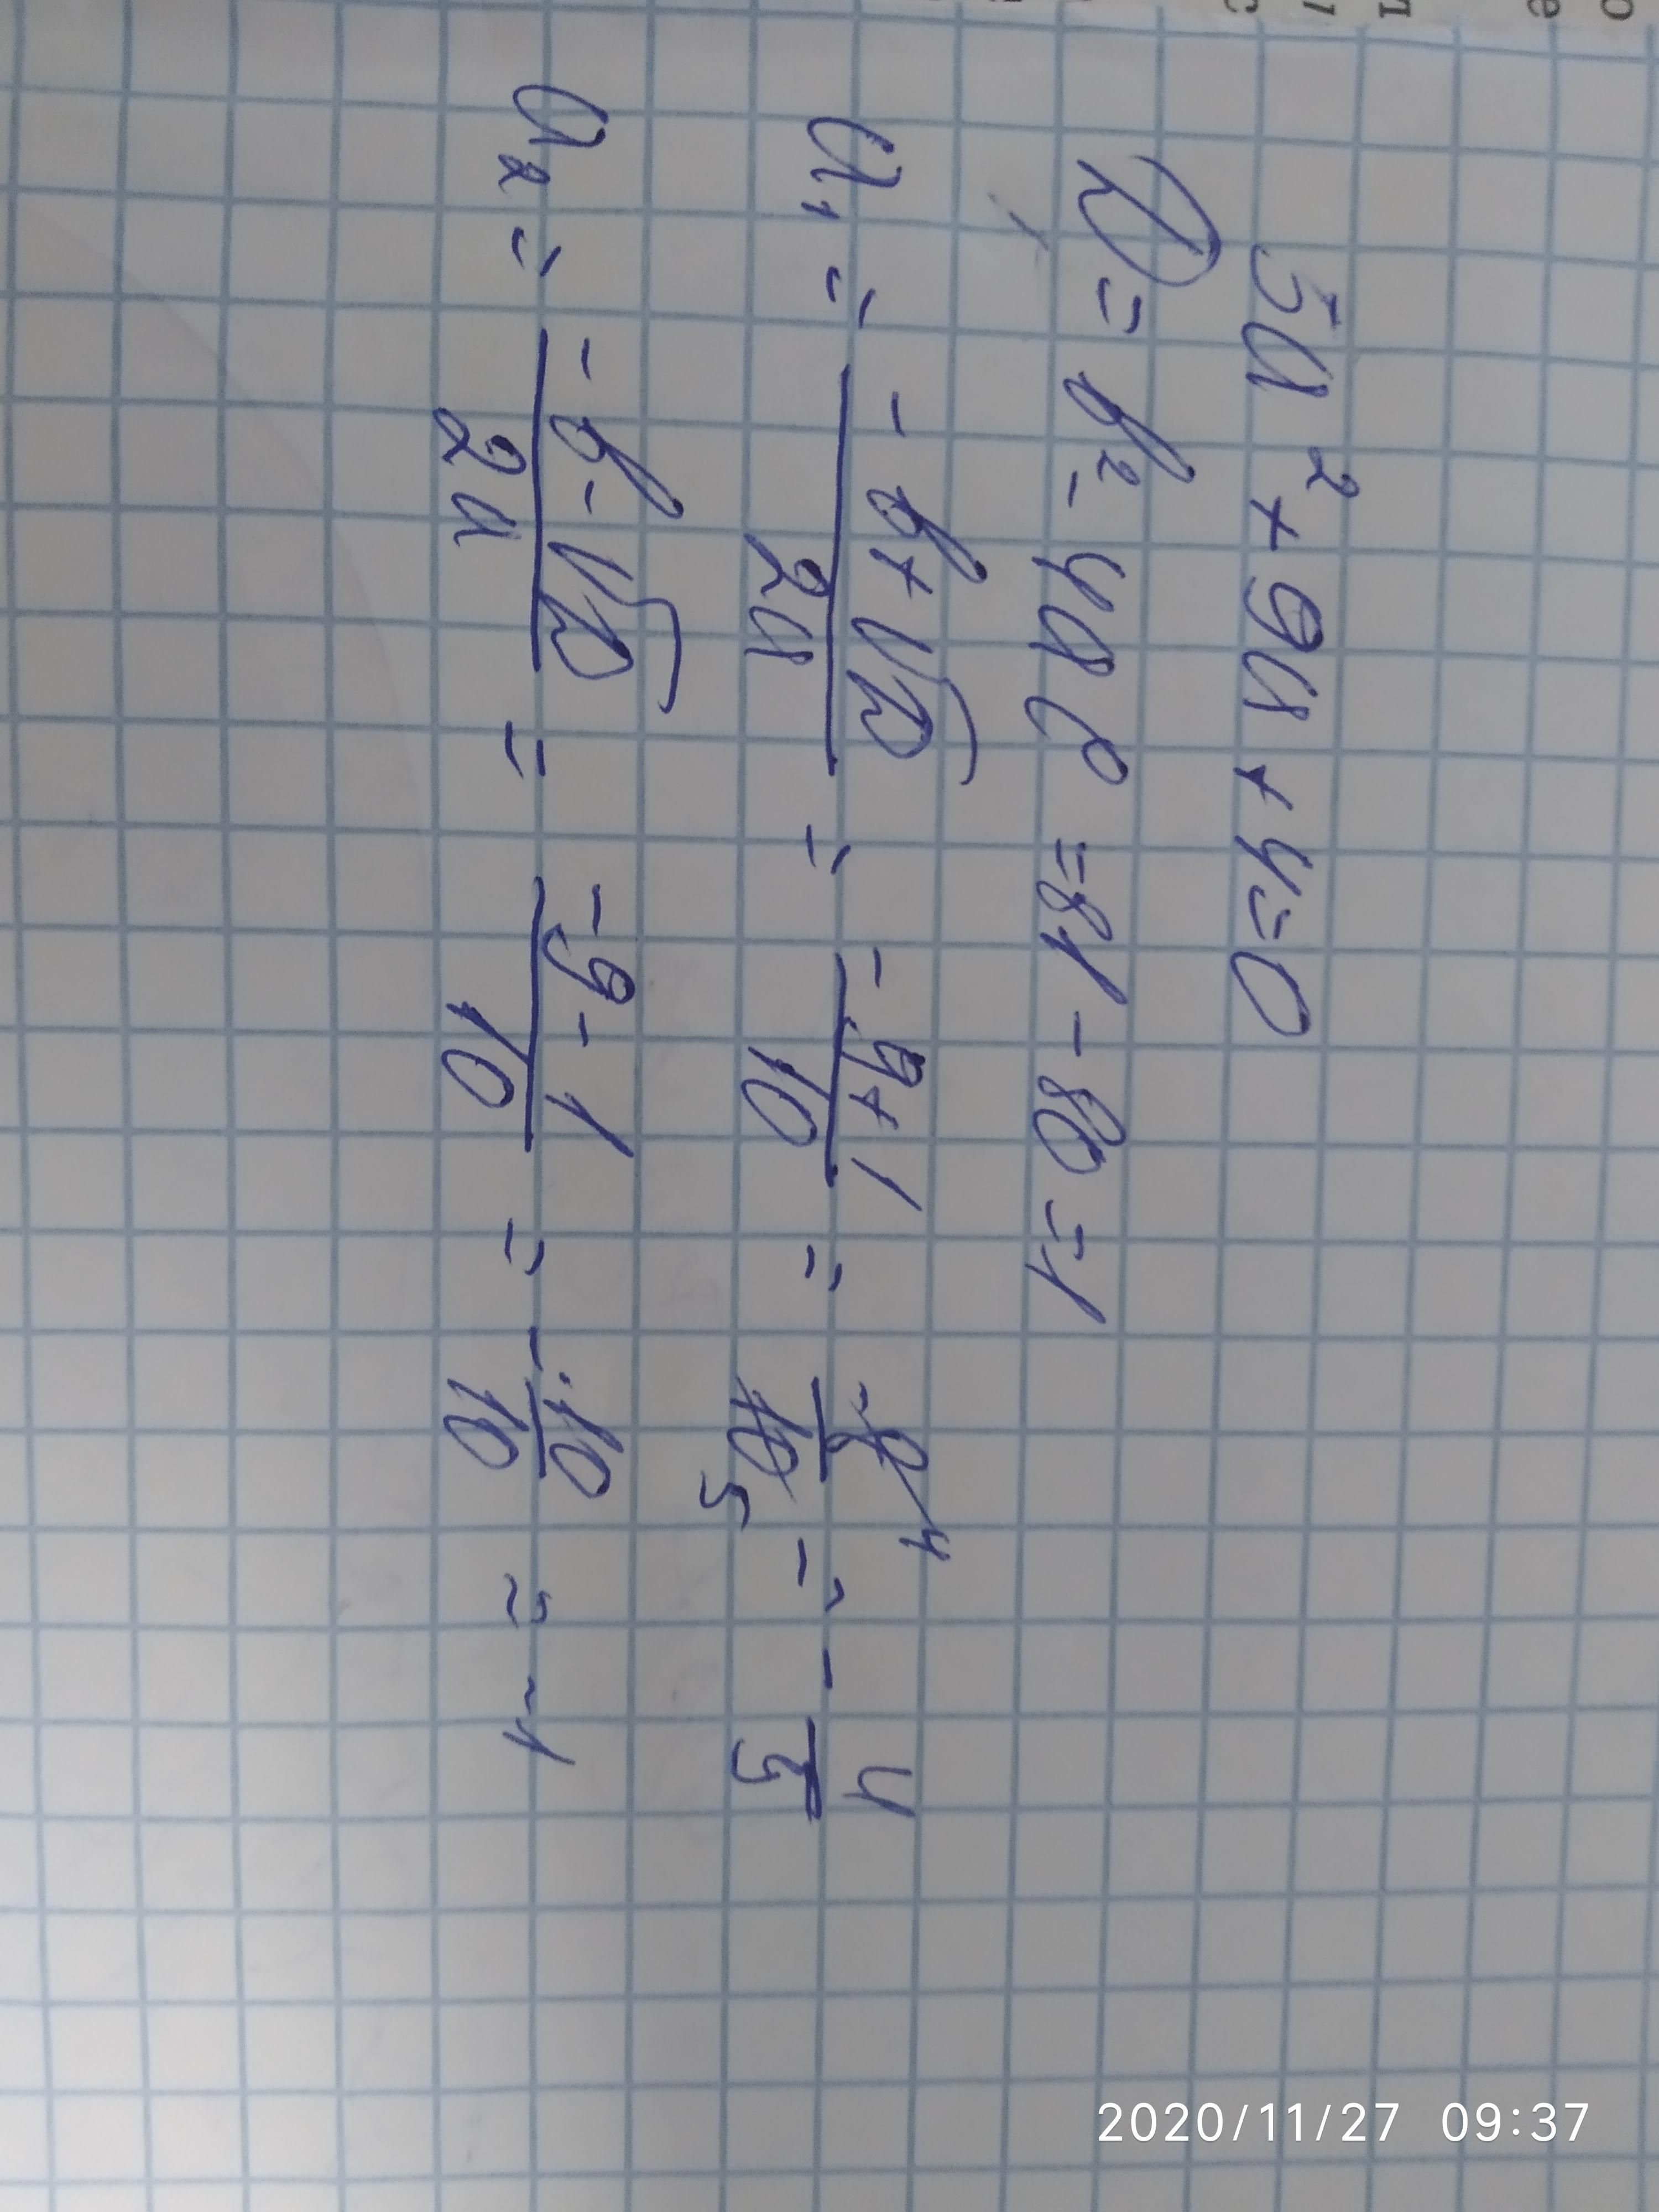 5a² + 9a + 4 = 0
D = b² - 4ac = 81 - 80 = 1
a₁ = (-b + √D)/(2a) = (-9 + 1)/10 = -8/10 = -4/5
a₂ = (-b - √D)/(2a) = (-9 - 1)/10 = -10/10 = -1
2020/11/27 09:37